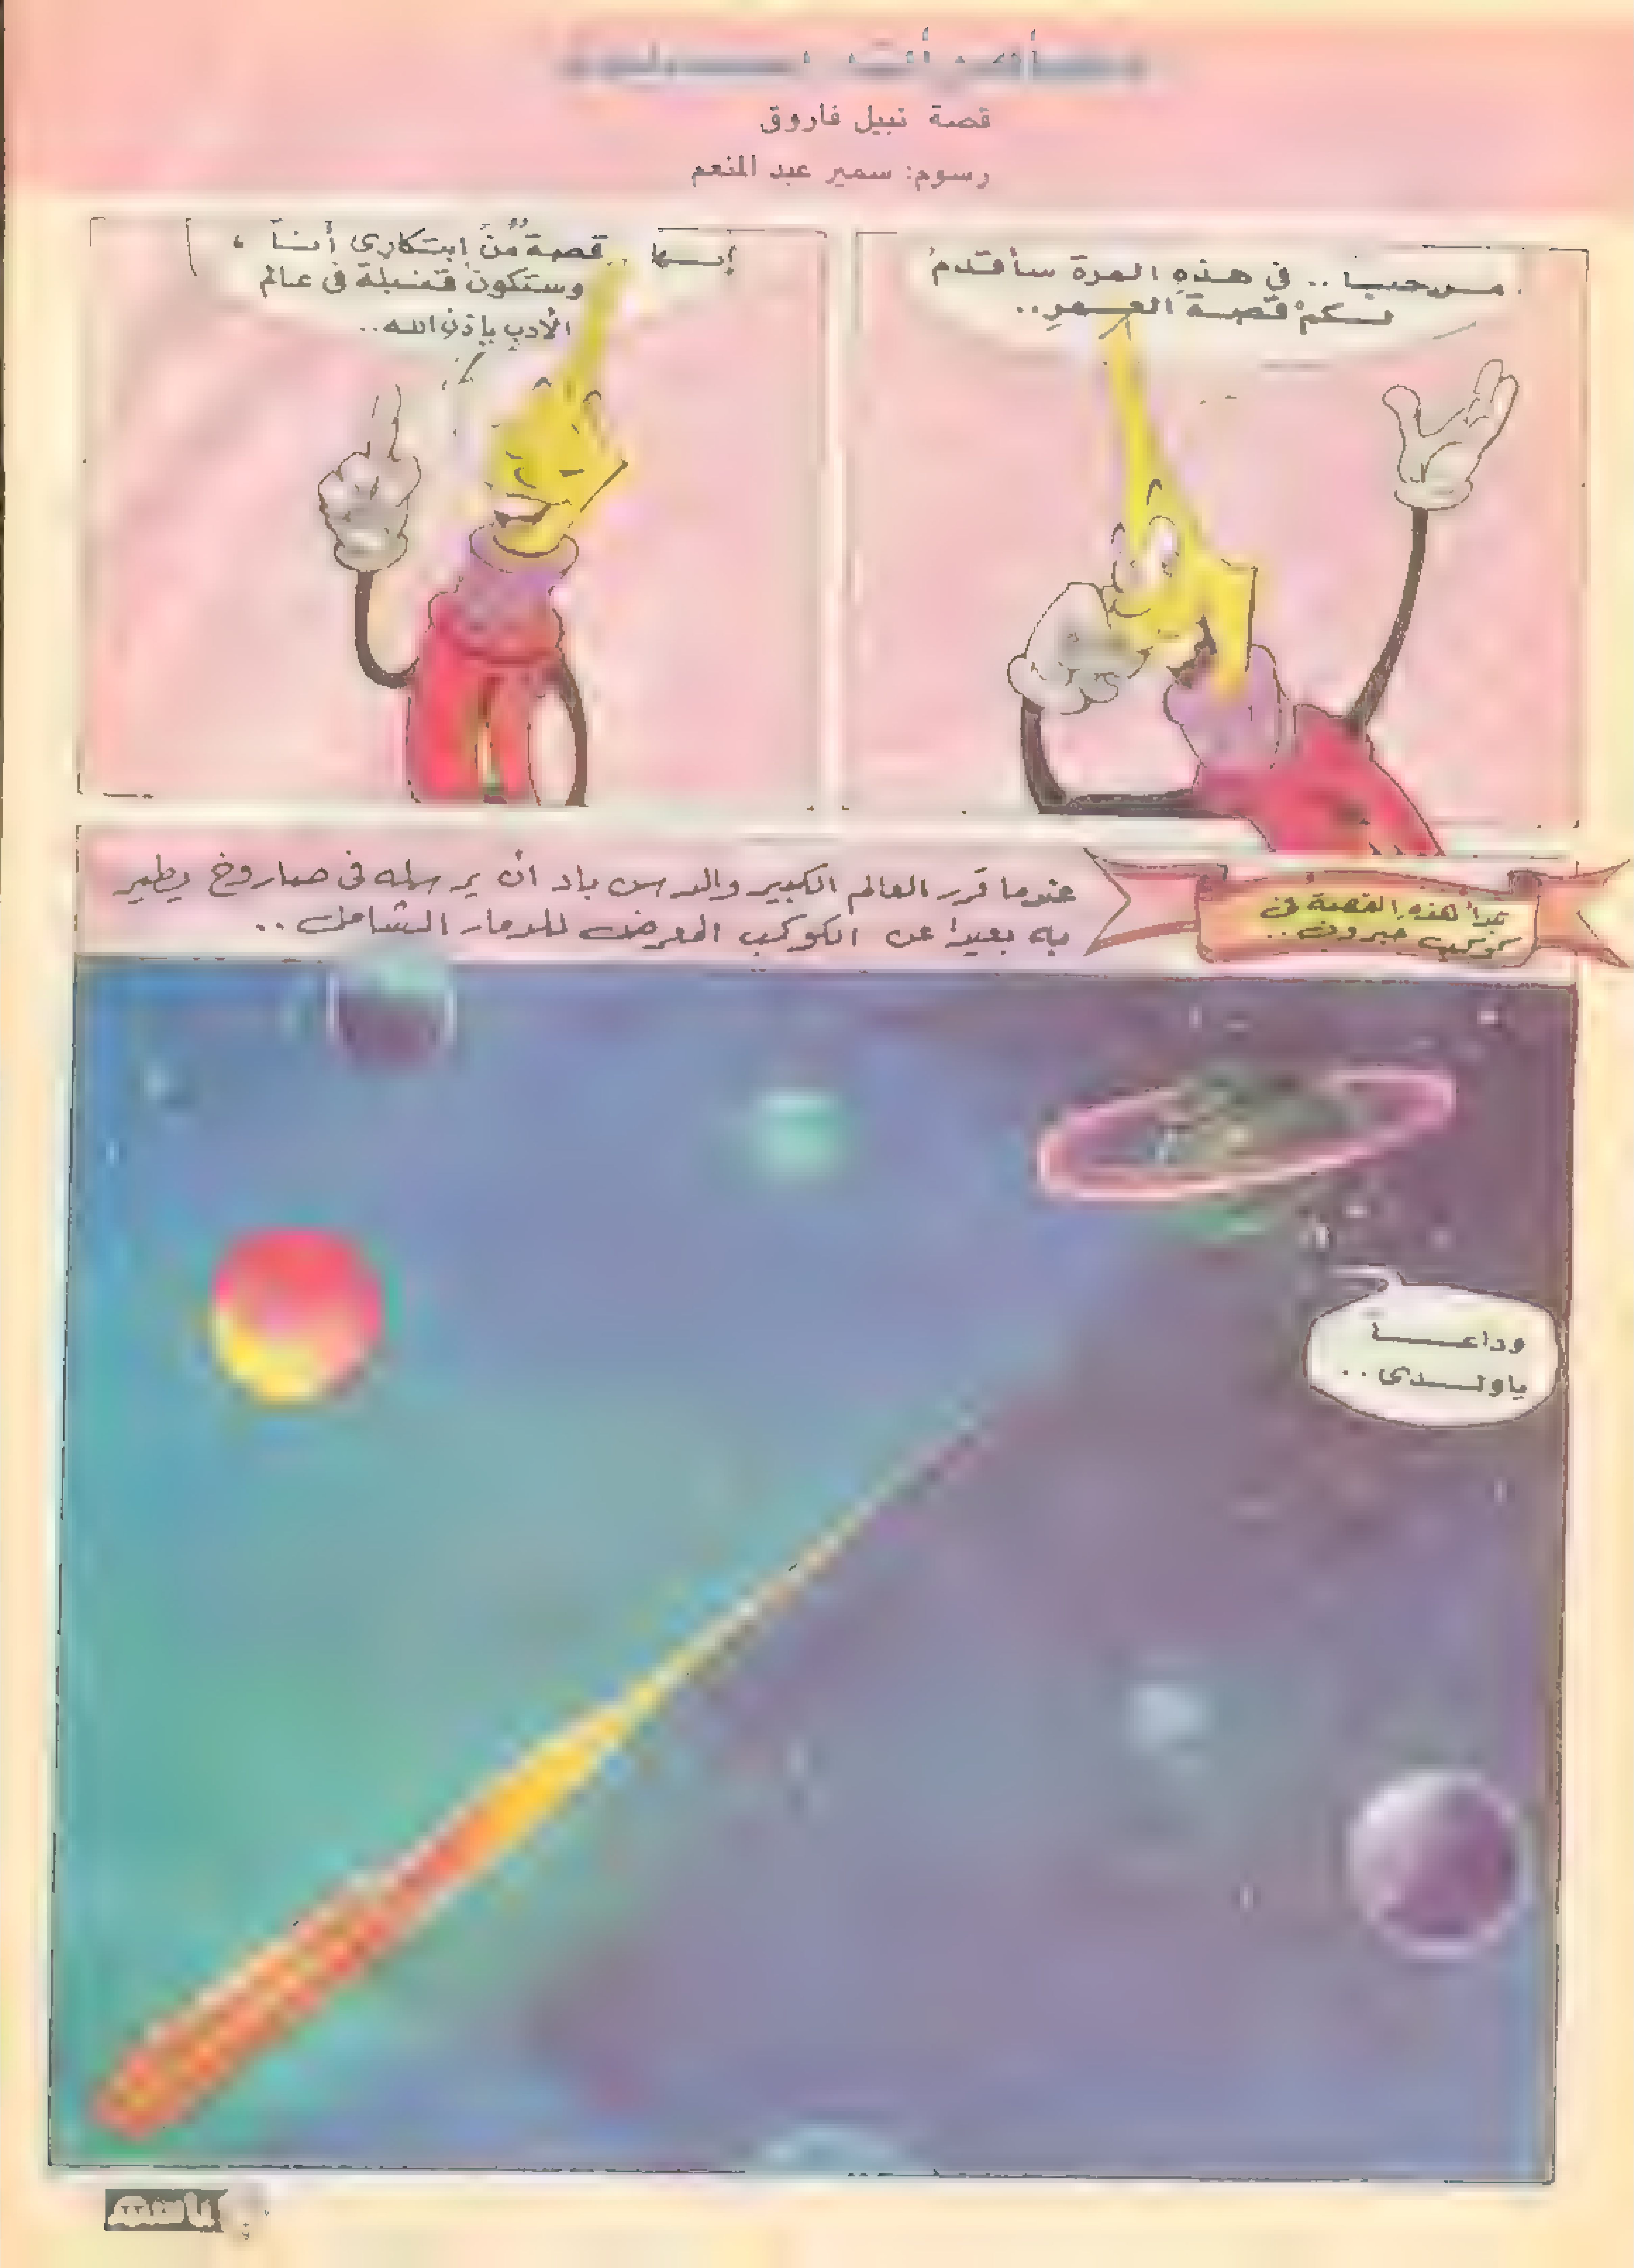 قصة نبيل فاروق
رسوم: سمير عبد المنعم
مرحبا .. في هذهِ المرة سأقدم
لكم قصة العمر..
إنها .. قصة من ابتكارى أنا ،
وستكون قنبلة فى عالم
الأدب بإذن الله..
تبدأ هذه القصة فى
كوكب ..
عندما قرر العالم الكبير والد سن باد أن يرسله فى صاروخ يطير
به بعيدا عن الكوكب المعرض للدمار الشامل ..
وداعـــا
ياولـــدى..
باسم